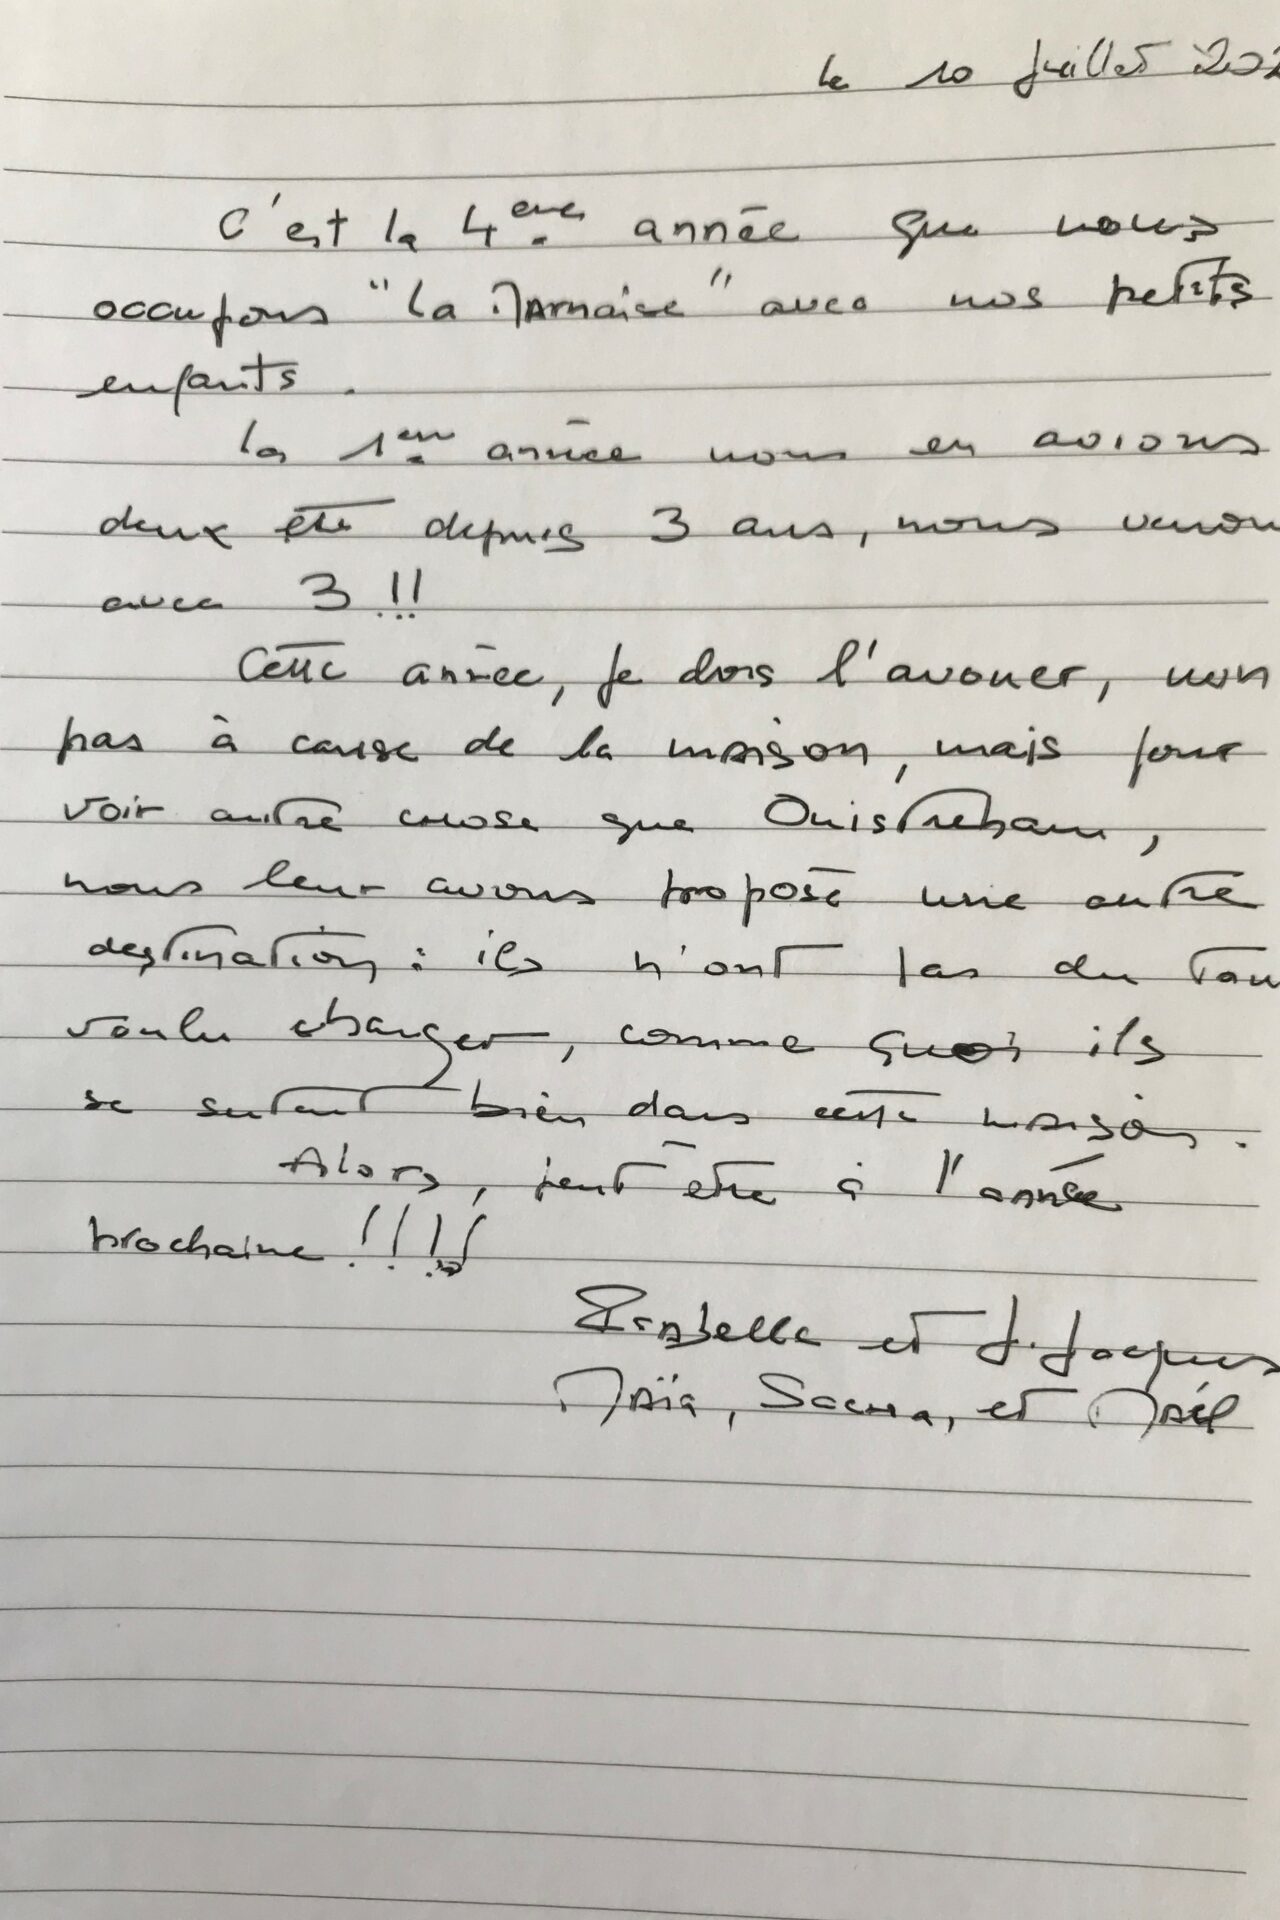 le 10 Juillet 202
C'est la 4eme année que nous
occupons "La Marnaise" avec nos petits
enfants.
La 1ere année nous en avions
deux et depuis 3 ans, nous venon
avec 3 !!
Cette année, je dois l'avouer, non
pas à cause de la maison, mais pour
voir autre chose que Ouistreham,
nous leur avons proposé une autre
destination : ils n'ont pas du tou
voulu changer, comme quoi ils
se sentent bien dans cette maison.
Alors, peut être à l'année
prochaine !!!!
Isabelle et J. Jacques
Maïa, et Maël